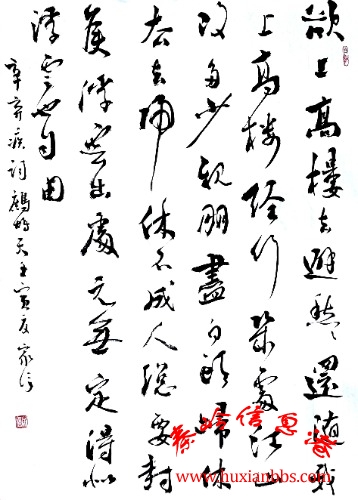 欲上高樓去避愁愁還隨我
上高楼经行幾處江山
改多少親朋盡白頭歸休
去去歸休不成人總要封
侯浮雲出處元無定得似
浮雲也自由
辛弃疾词鹧鸪天壬寅夏家信
秦岭信息港
www.huxianbbs.com